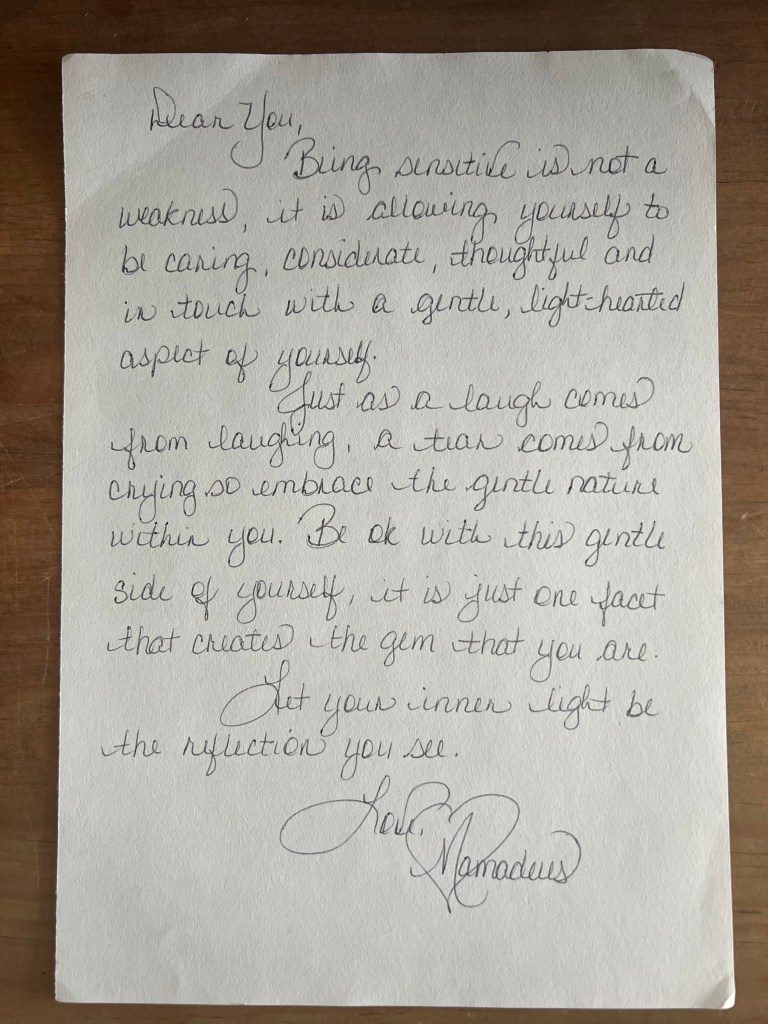 Dear You,
Being sensitive is not a
weakness, it is allowing yourself to
be caring, considerate, thoughtful and
in touch with a gentle, light-hearted
aspect of yourself.
Just as a laugh comes
from laughing, a tear comes from
crying so embrace the gentle nature
within you. Be ok with this gentle
side of yourself, it is just one facet
that creates the gem that you are.
Let your inner light be
the reflection you see.
Love,
Mamadeus